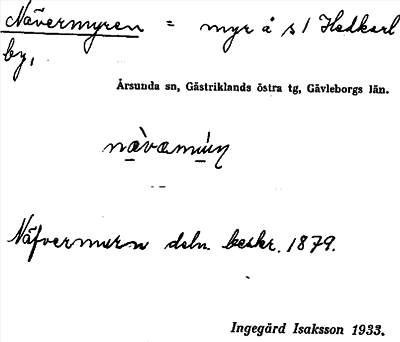 Nävermyren = myr å s/ Hedkarl
by,
Årsunda sn, Gästriklands östra tg, Gävleborgs län.
Näfvermurn deln. beskr. 1879.
Ingegärd Isaksson 1933.